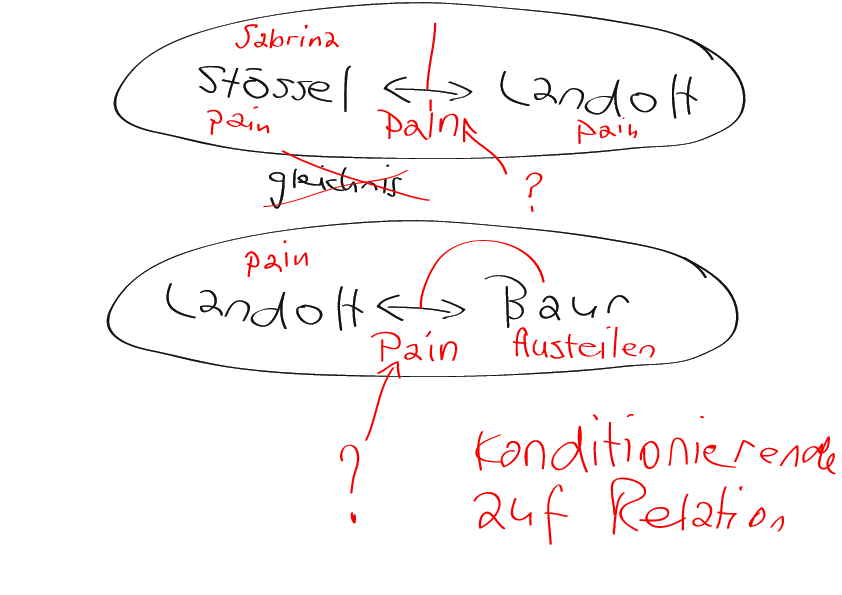 Sabrina
Stössel ↔ Landolt
pain pain pain
gleichnis ?
pain
Landolt ↔ Baur
Pain Austeilen
?
Konditionierende
auf Relation